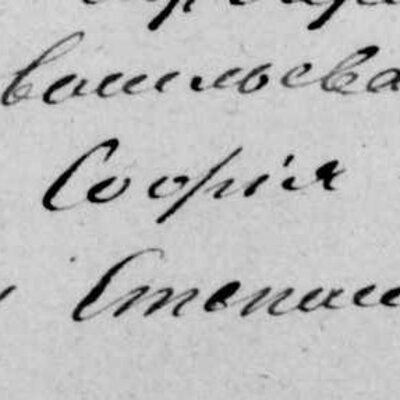 Васильева
Софія
Степан